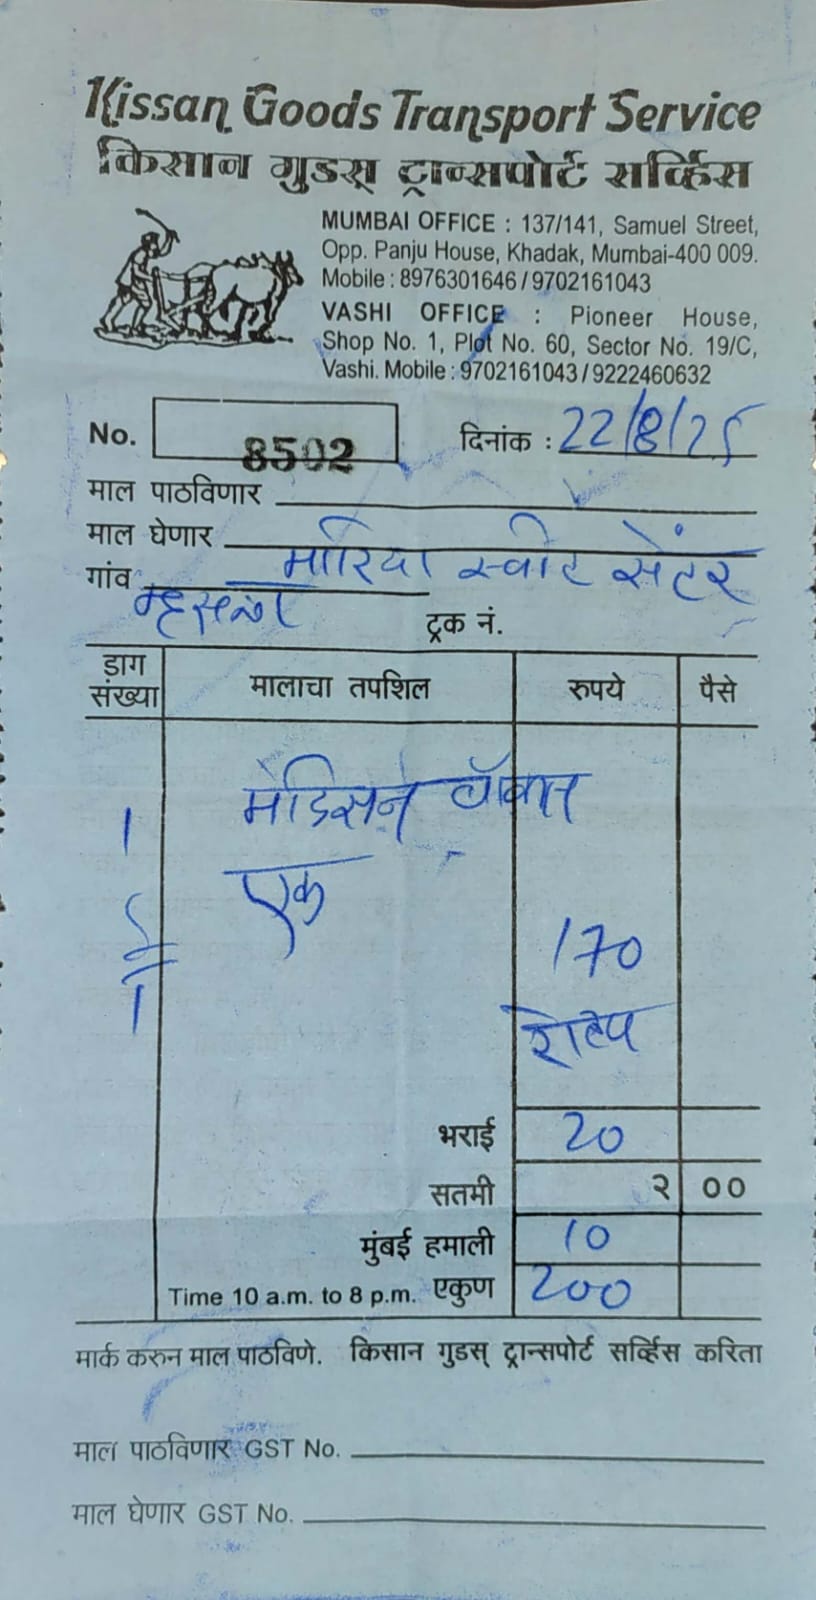 Kissan Goods Transport Service
किसान गुडस् ट्रान्सपोर्ट सर्व्हिस
MUMBAI OFFICE : 137/141, Samuel Street,
Opp. Panju House, Khadak, Mumbai-400 009.
Mobile : 8976301646 / 9702161043
VASHI OFFICE : Pioneer House,
Shop No. 1, Plot No. 60, Sector No. 19/C,
Vashi. Mobile : 9702161043 / 9222460632
No. 8502 दिनांक : 22/8/25
माल पाठविणार
माल घेणार मारिया स्वीट सेंटर
गांव म्हसळा
ट्रक नं.
डाग संख्या मालाचा तपशिल रुपये पैसे
1 मेडिसन बॉक्स
एक
170
1
भराई 20
सतमी २ ००
मुंबई हमाली 10
Time 10 a.m. to 8 p.m. एकुण 200
मार्क करुन माल पाठविणे. किसान गुडस् ट्रान्सपोर्ट सर्व्हिस करिता
माल पाठविणार GST No.
माल घेणार GST No.